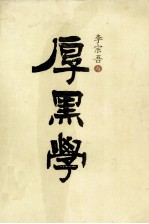 厚黑學
李宗吾